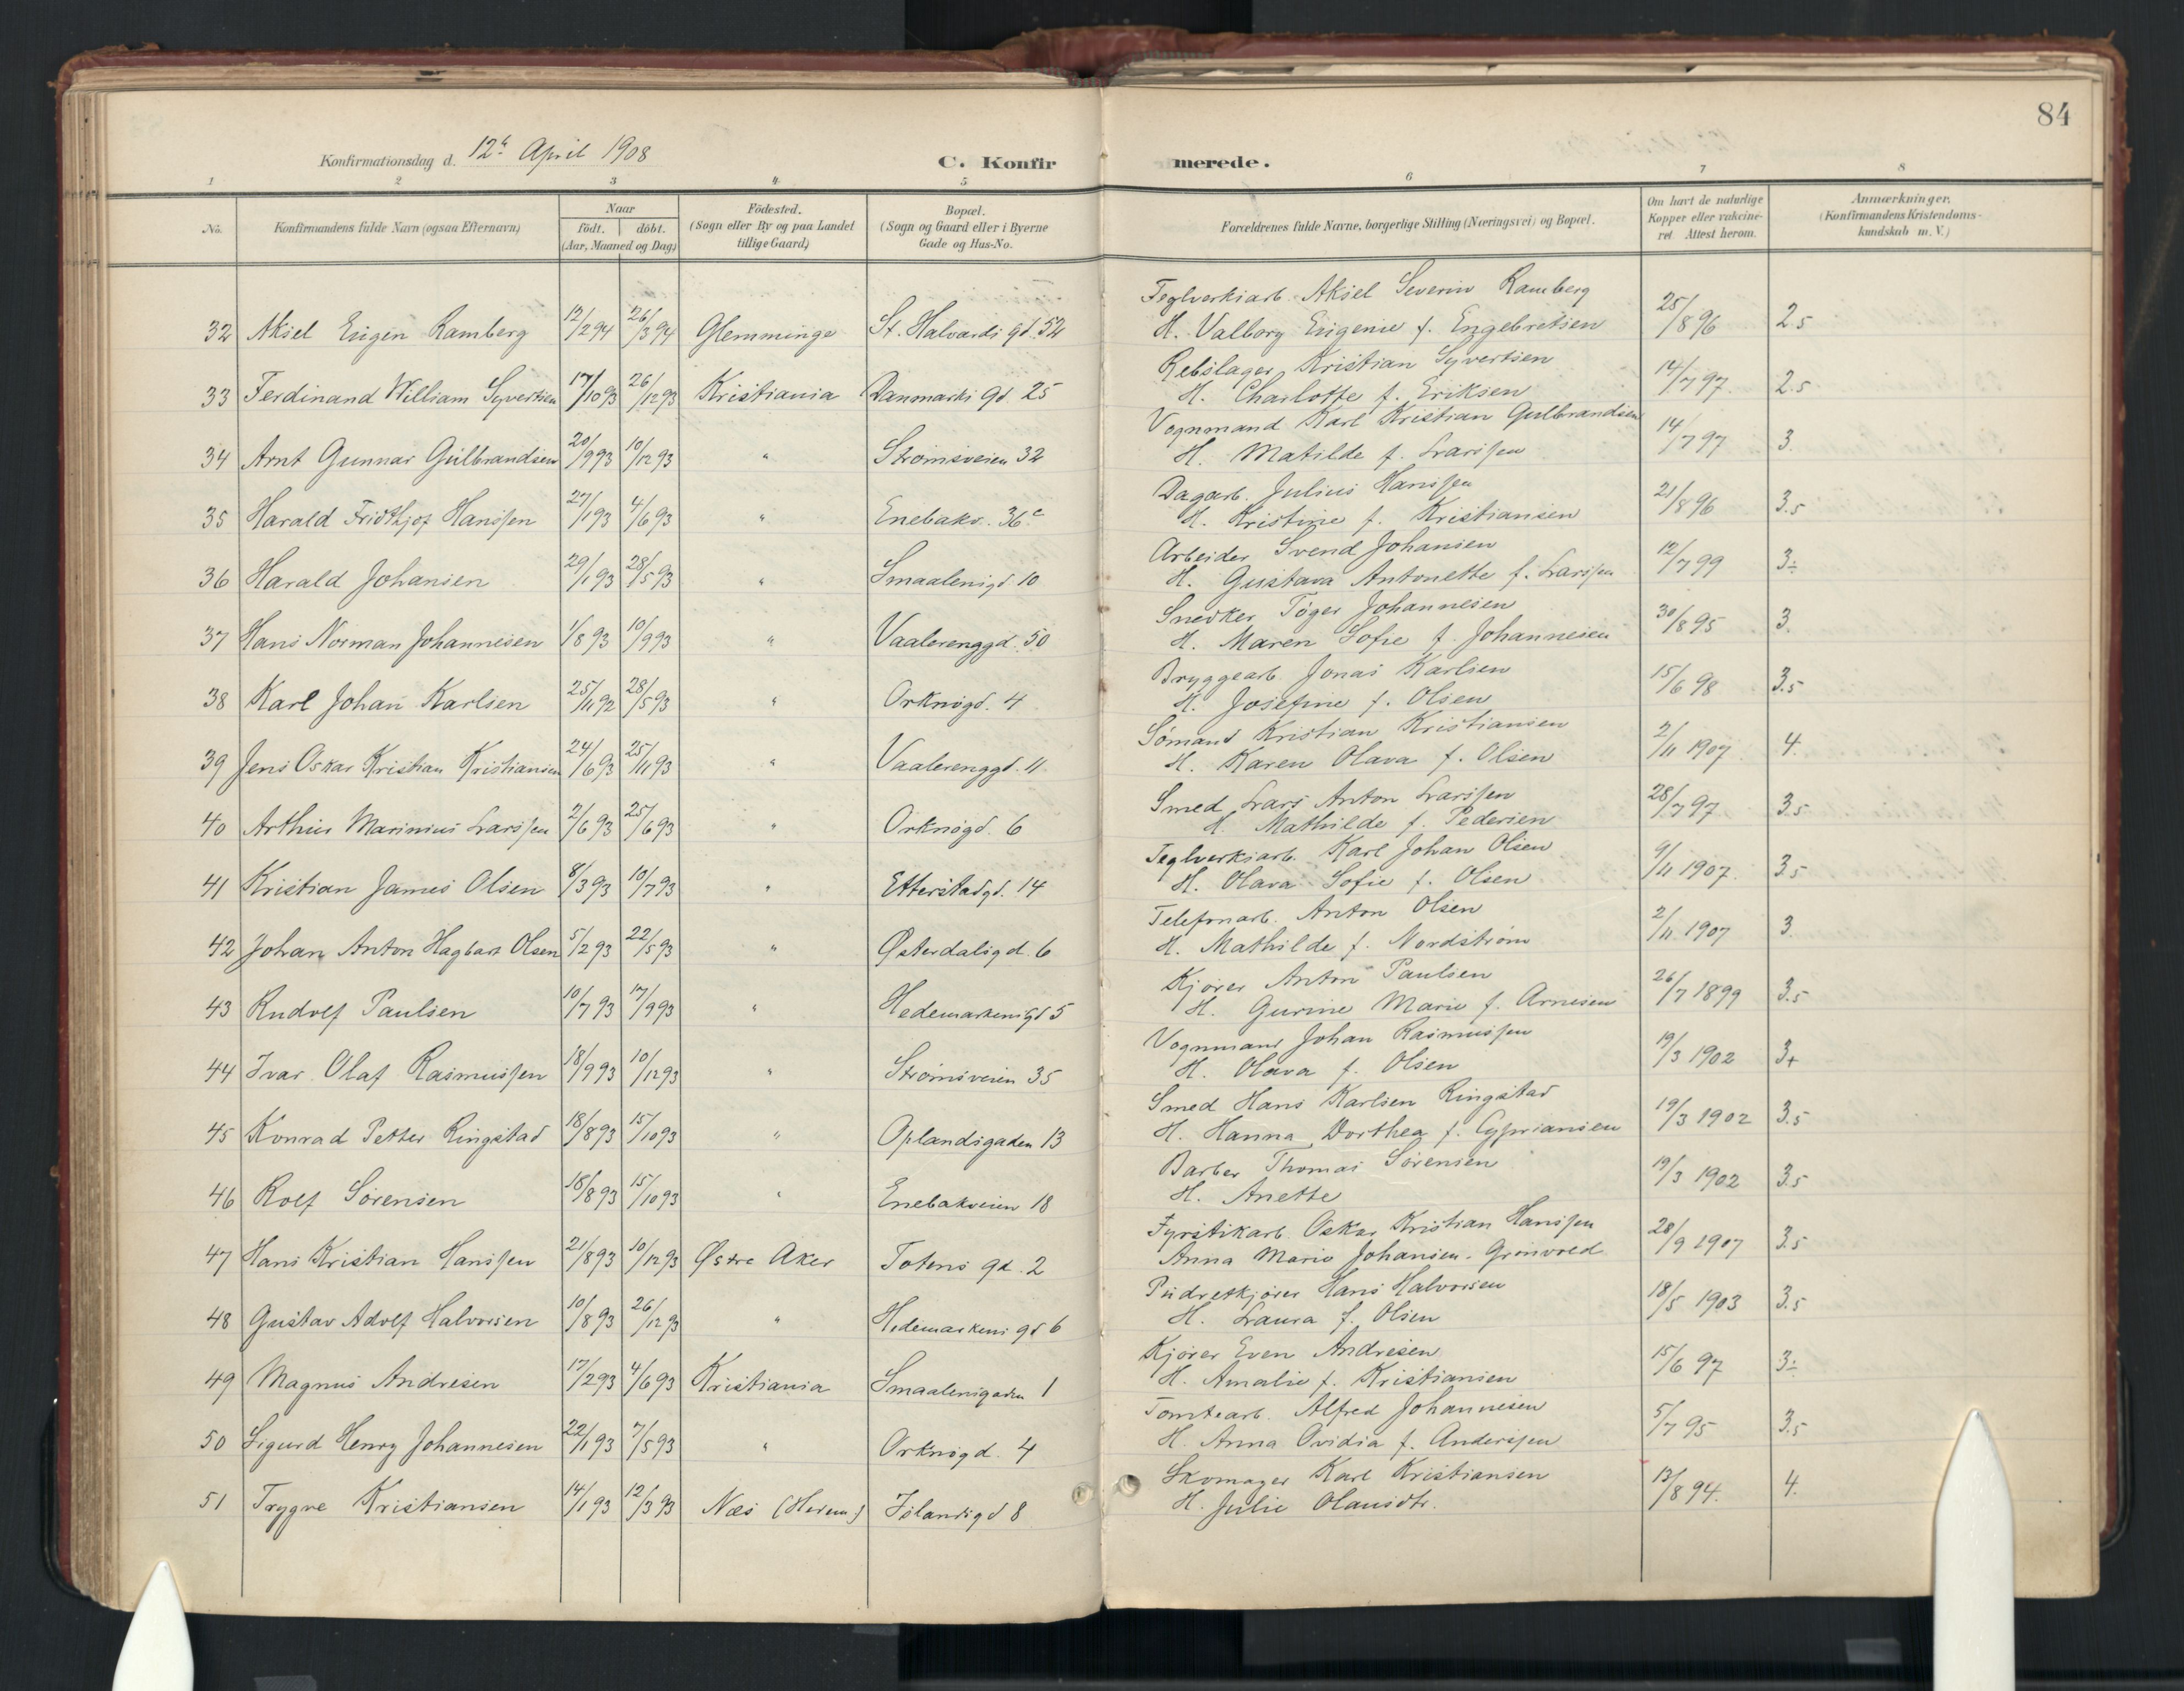 84
Konfirmationsdag d. 12te April 1908
C. Konfirmerede.
1 2 3 4 5 6 7 8
No. Konfirmandens fulde Navn (ogsaa Efternavn) Naar født. døbt. (Aar, Maaned og Dag) Fødested. (Sogn eller By og paa Landet tillige Gaard) Bopæl. (Sogn og Gaard eller i Byerne Gade og Hus-No. Forældrenes fulde Navne, borgerlige Stilling (Næringsvei) og Bopæl. Om havt de naturlige Kopper eller vakcineret. Attest herom. Anmærkninger. (Konfirmandens Kristendomskundskab m. V.)
Teglverksarb. Aksel Severin Ramberg
32 Aksel Eugen Ramberg 12/2 94 26/3 94 Glemminge St. Halvards gd. 52 H. Valborg Eugenie f. Engebretsen 25/8 96 2.5
Rebslager Kristian Syvertsen
33 Ferdinand William Syvertsen 17/10 93 26/12 93 Kristiania Danmarks gd. 25 H. Charlotte f. Eriksen 14/7 97. 2.5
Vognmand Karl Kristian Gulbrandsen
34 Arnt Gunnar Gulbrandsen 20/9 93 10/12 93 " Strømsveien 32 H. Matilde f. Larssen 14/7 97 3.
Dagarb. Julius Hanssen
35 Harald Fridthjof Hanssen 27/1 93 4/6 93 " Enebakv. 36c H. Kristine f. Kristiansen 21/8 96 3.5
Arbeider Svend Johansen
36 Harald Johansen 29/1 93 28/5 93 " Smaalensgd. 10 H. Gustava Antonette f. Larssen 12/7 99 3÷
Snedker Tøger Johannesen
37 Hans Norman Johannesen 1/8 93 10/9 93 " Vaalerenggd. 50 H. Maren Sofie f. Johannesen 30/8 95 3.
Bryggearb. Jonas Karlsen
38 Karl Johan Karlsen 25/11 92 28/5 93 " Orknøgd. 4 H. Josefine f. Olsen 15/6 98 3.5
Sømand Kristian Kristiansen
39 Jens Oskar Kristian Kristiansen 24/6 93 25/11 93 " Vaalerenggd. 11 H. Karen Olava f. Olsen 2/11 1907 4.
Smed Lars Anton Larssen
40 Arthur Marinius Larssen 2/6 93 25/6 93 " Orknøgd. 6 H. Mathilde f. Pedersen 28/7 97 3.5
Teglverksarb. Karl Johan Olsen
41 Kristian James Olsen 8/3 93 10/7 93 " Etterstadgd. 14 H. Olava Sofie f. Olsen 9/11 1907. 3.5
Telefonarb. Anton Olsen
42 Johan Anton Hagbart Olsen 5/2 93 22/5 93 " Østerdalsgd. 6 H. Mathilde f. Nordstrøm 2/11 1907 3.
Kjører Anton Paulsen
43 Rudolf Paulsen 10/7 93 17/9 93 " Hedemarkensgd 5 H. Gurine Marie f. Arnesen 26/7 1899 3.5
Vognmand Johan Rasmussen
44 Ivar Olaf Rasmussen 18/9 93 10/12 93 " Strømsveien 35 H. Olava f. Olsen 19/3 1902 3+
Smed Hans Karlsen Ringstad
45 Konrad Petter Ringstad 18/8 93 15/10 93 " Oplandsgaden 13 H. Hanna Dorthea f. Cypriansen 19/3 1902 3.5
Barber Thomas Sørensen
46 Rolf Sørensen 18/8 93 15/10 93 " Enebakveien 18 H. Anette 19/3 1902 3.5
Fyrstikarb. Oskar Kristian Hanssen
47 Hans Kristian Hanssen 21/8 93 10/12 93 Østre Aker Totens gd. 2 Anna Marie Johansen-Grønvold 28/9 1907 3.5
Pudretkjører Hans Halvorsen
48 Gustav Adolf Halvorsen 10/8 93 26/12 93 " Hedemarkens gd 6 H. Laura f. Olsen 18/5 1903 3.5
Kjører Even Andresen
49 Magnus Andresen 17/2 93 4/6 93 Kristiania Smaalensgaden 1 H. Amalie f. Kristiansen 15/6 97 3÷
Tomtearb. Alfred Johannesen
50 Sigurd Henry Johannesen 22/1 93 7/5 93 " Orknøgd. 4 H. Anna Ovidia f. Anderssen 5/7 95 3.5
Skomager Karl Kristiansen
51 Trygve Kristiansen 14/1 93 12/3 93 Næs (Hedem.) Islandsgd 8 H. Julie Olausdtr. 13/8 94. 4.